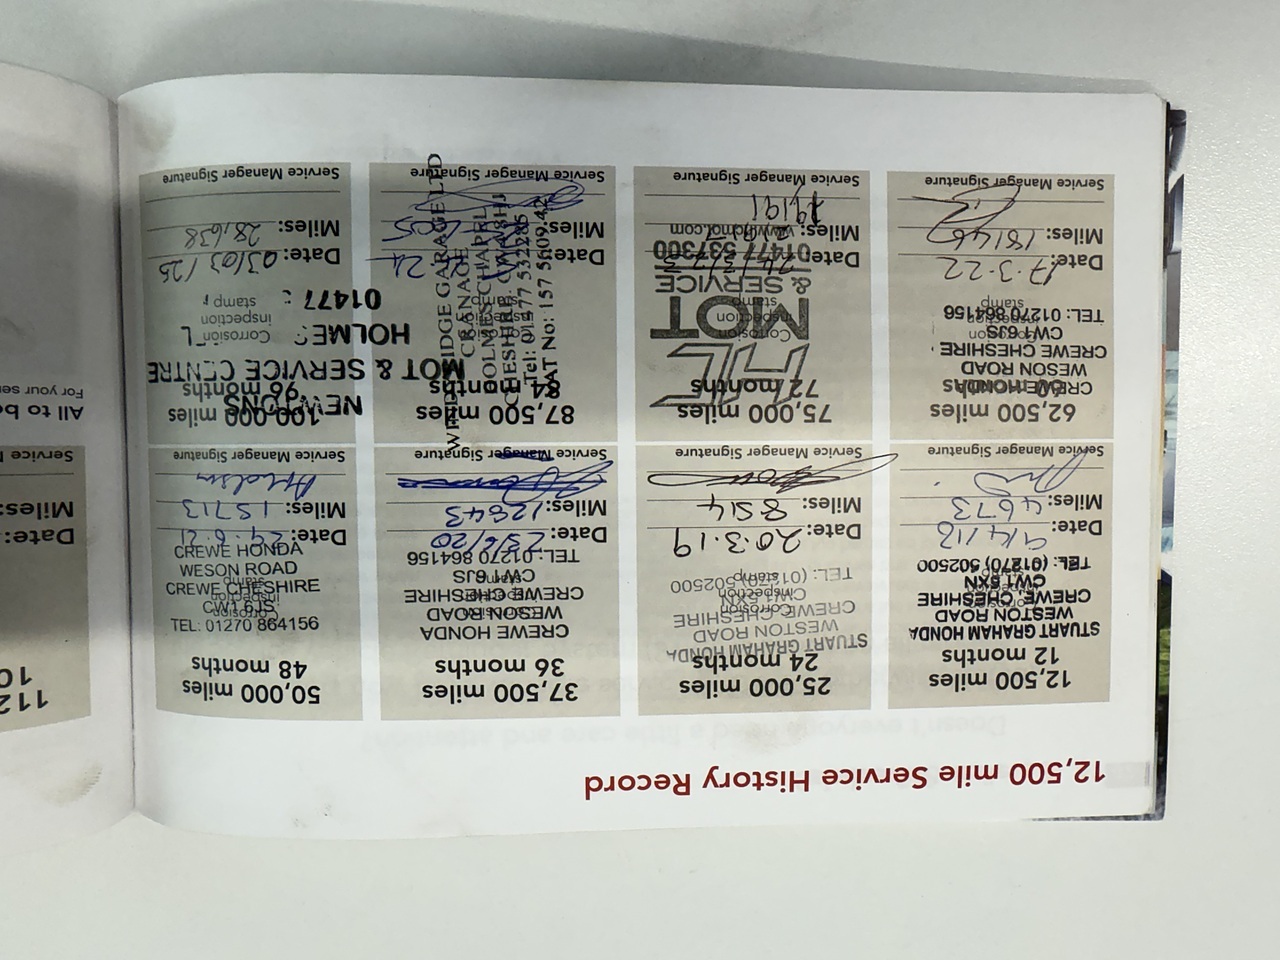 12,500 mile Service History Record
12,500 miles
12 months
STUART GRAHAM HONDA
WESTON ROAD
CREWE, CHESHIRE
CW1 6XN
TEL: (01270) 502500
Date: 9/4/18
Miles: 4673
Service Manager Signature
25,000 miles
24 months
STUART GRAHAM HONDA
WESTON ROAD
CREWE, CHESHIRE
CW1 6XN
TEL: (01270) 502500
Corrosion
inspection
stamp
Date: 20.3.19
Miles: 8514
Service Manager Signature
37,500 miles
36 months
CREWE HONDA
WESON ROAD
CREWE CHESHIRE
CW1 6JS
TEL: 01270 864156
Date: 25/6/20
Miles: 12843
Service Manager Signature
50,000 miles
48 months
CREWE HONDA
WESON ROAD
CREWE CHESHIRE
CW1 6JS
TEL: 01270 864156
Corrosion
inspection
stamp
Date: 29.6.21
Miles: 15713
Service Manager Signature
62,500 miles
60 months
CREWE HONDA
WESON ROAD
CREWE CHESHIRE
CW1 6JS
TEL: 01270 864156
stamp
Date: 17.3.22
Miles: 18146
Service Manager Signature
75,000 miles
72 months
HC
MOT
& SERVICE
Corrosion
inspection
stamp
01477 537300
Date:
Miles:
19191
Service Manager Signature
87,500 miles
84 months
CRANAGE
HOLMES CHAPEL
CHESHIRE
Tel: 01477 532285
Date:
Miles:
Service Manager Signature
100,000 miles
96 months
MOT & SERVICE CENTRE
01477
Corrosion
inspection
stamp
Date: 03/03/25
Miles: 28,638
Service Manager Signature
All to be
For your ser
Date:
Miles:
Service